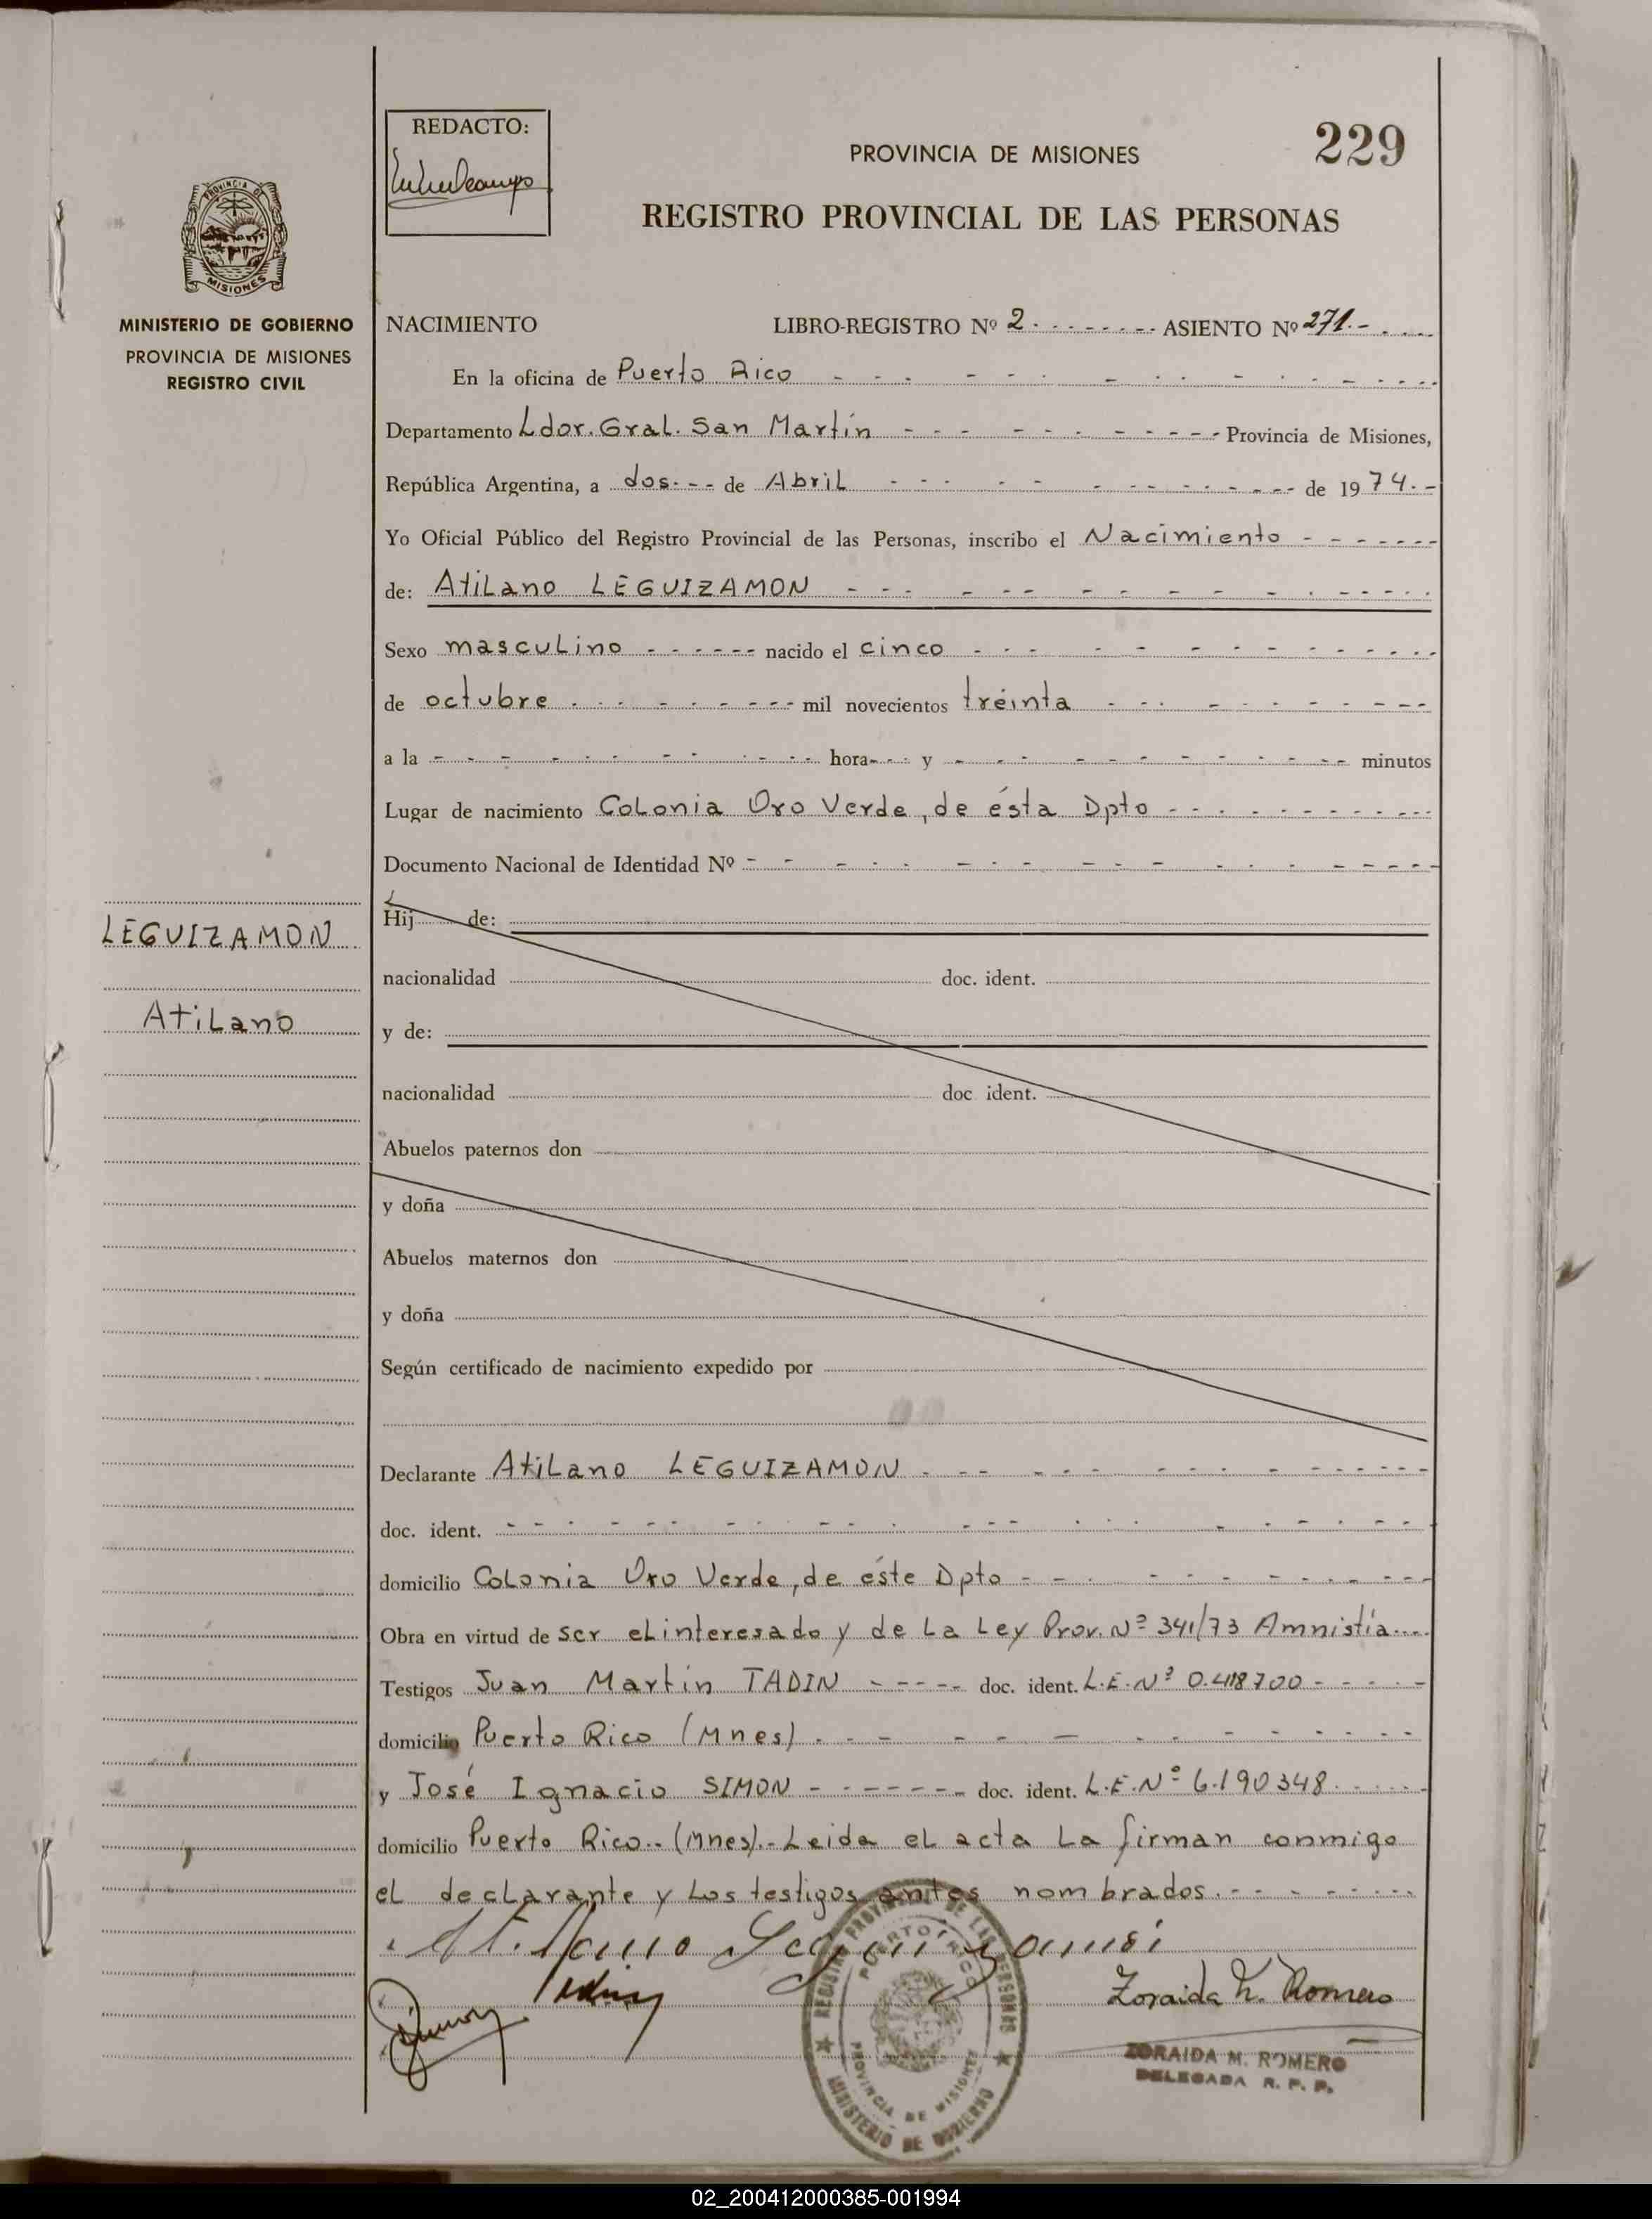 REDACTO:
PROVINCIA DE MISIONES
229
REGISTRO PROVINCIAL DE LAS PERSONAS
PROVINCIA DE
MISIONES
MINISTERIO DE GOBIERNO
PROVINCIA DE MISIONES
REGISTRO CIVIL
NACIMIENTO LIBRO-REGISTRO Nº 2 ASIENTO Nº 271.-
En la oficina de Puerto Rico
Departamento Ldor. Gral. San Martín Provincia de Misiones,
República Argentina, a dos de Abril de 1974.-
Yo Oficial Público del Registro Provincial de las Personas, inscribo el Nacimiento
de: Atilano LEGUIZAMON
Sexo masculino nacido el cinco
de octubre mil novecientos treinta
a la hora y minutos
Lugar de nacimiento Colonia Oro Verde, de ésta Dpto
Documento Nacional de Identidad Nº
LEGUIZAMON
Atilano
Hij de:
nacionalidad doc. ident.
y de:
nacionalidad doc. ident.
Abuelos paternos don
y doña
Abuelos maternos don
y doña
Según certificado de nacimiento expedido por
Declarante Atilano LEGUIZAMON
doc. ident.
domicilio Colonia Oro Verde, de éste Dpto
Obra en virtud de ser el interesado y de la Ley Prov. Nº 341/73 Amnistía
Testigos Juan Martín TADIN doc. ident. L.E. Nº
domicilio Puerto Rico (Mnes)
y José Ignacio SIMON doc. ident. L.E. Nº 6.190348
domicilio Puerto Rico.. (Mnes).- Leida el acta la firman conmigo
el declarante y los testigos antes nombrados.
Zoraida M. Romero
ZORAIDA M. ROMERO
DELEGADA R. P. P.
REGISTRO PROVINCIAL DE LAS PERSONAS
PUERTO RICO
PROVINCIA DE MISIONES
MINISTERIO DE GOBIERNO
02_200412000385-001994